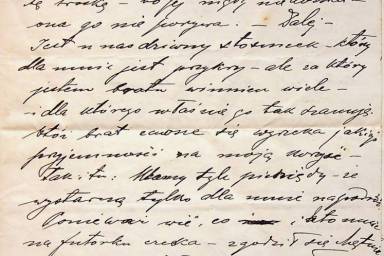 się troskę – bo jej nigdy
ona go nie porywa. – Dalej –
Jest u nas dziwny stosunek – który
dla mnie jest przykry – ale za który
jestem bratu winien wiele –
i dla którego właśnie go tak szanuję
brat się wyrzeka
przyjemności na moją korzyść –
Tak i tu: Mamy tyle pieniędzy – że
wystarczą tylko dla mnie
Ponieważ wie, co i kto mnie
na futorku czeka – zgodził się chętnie